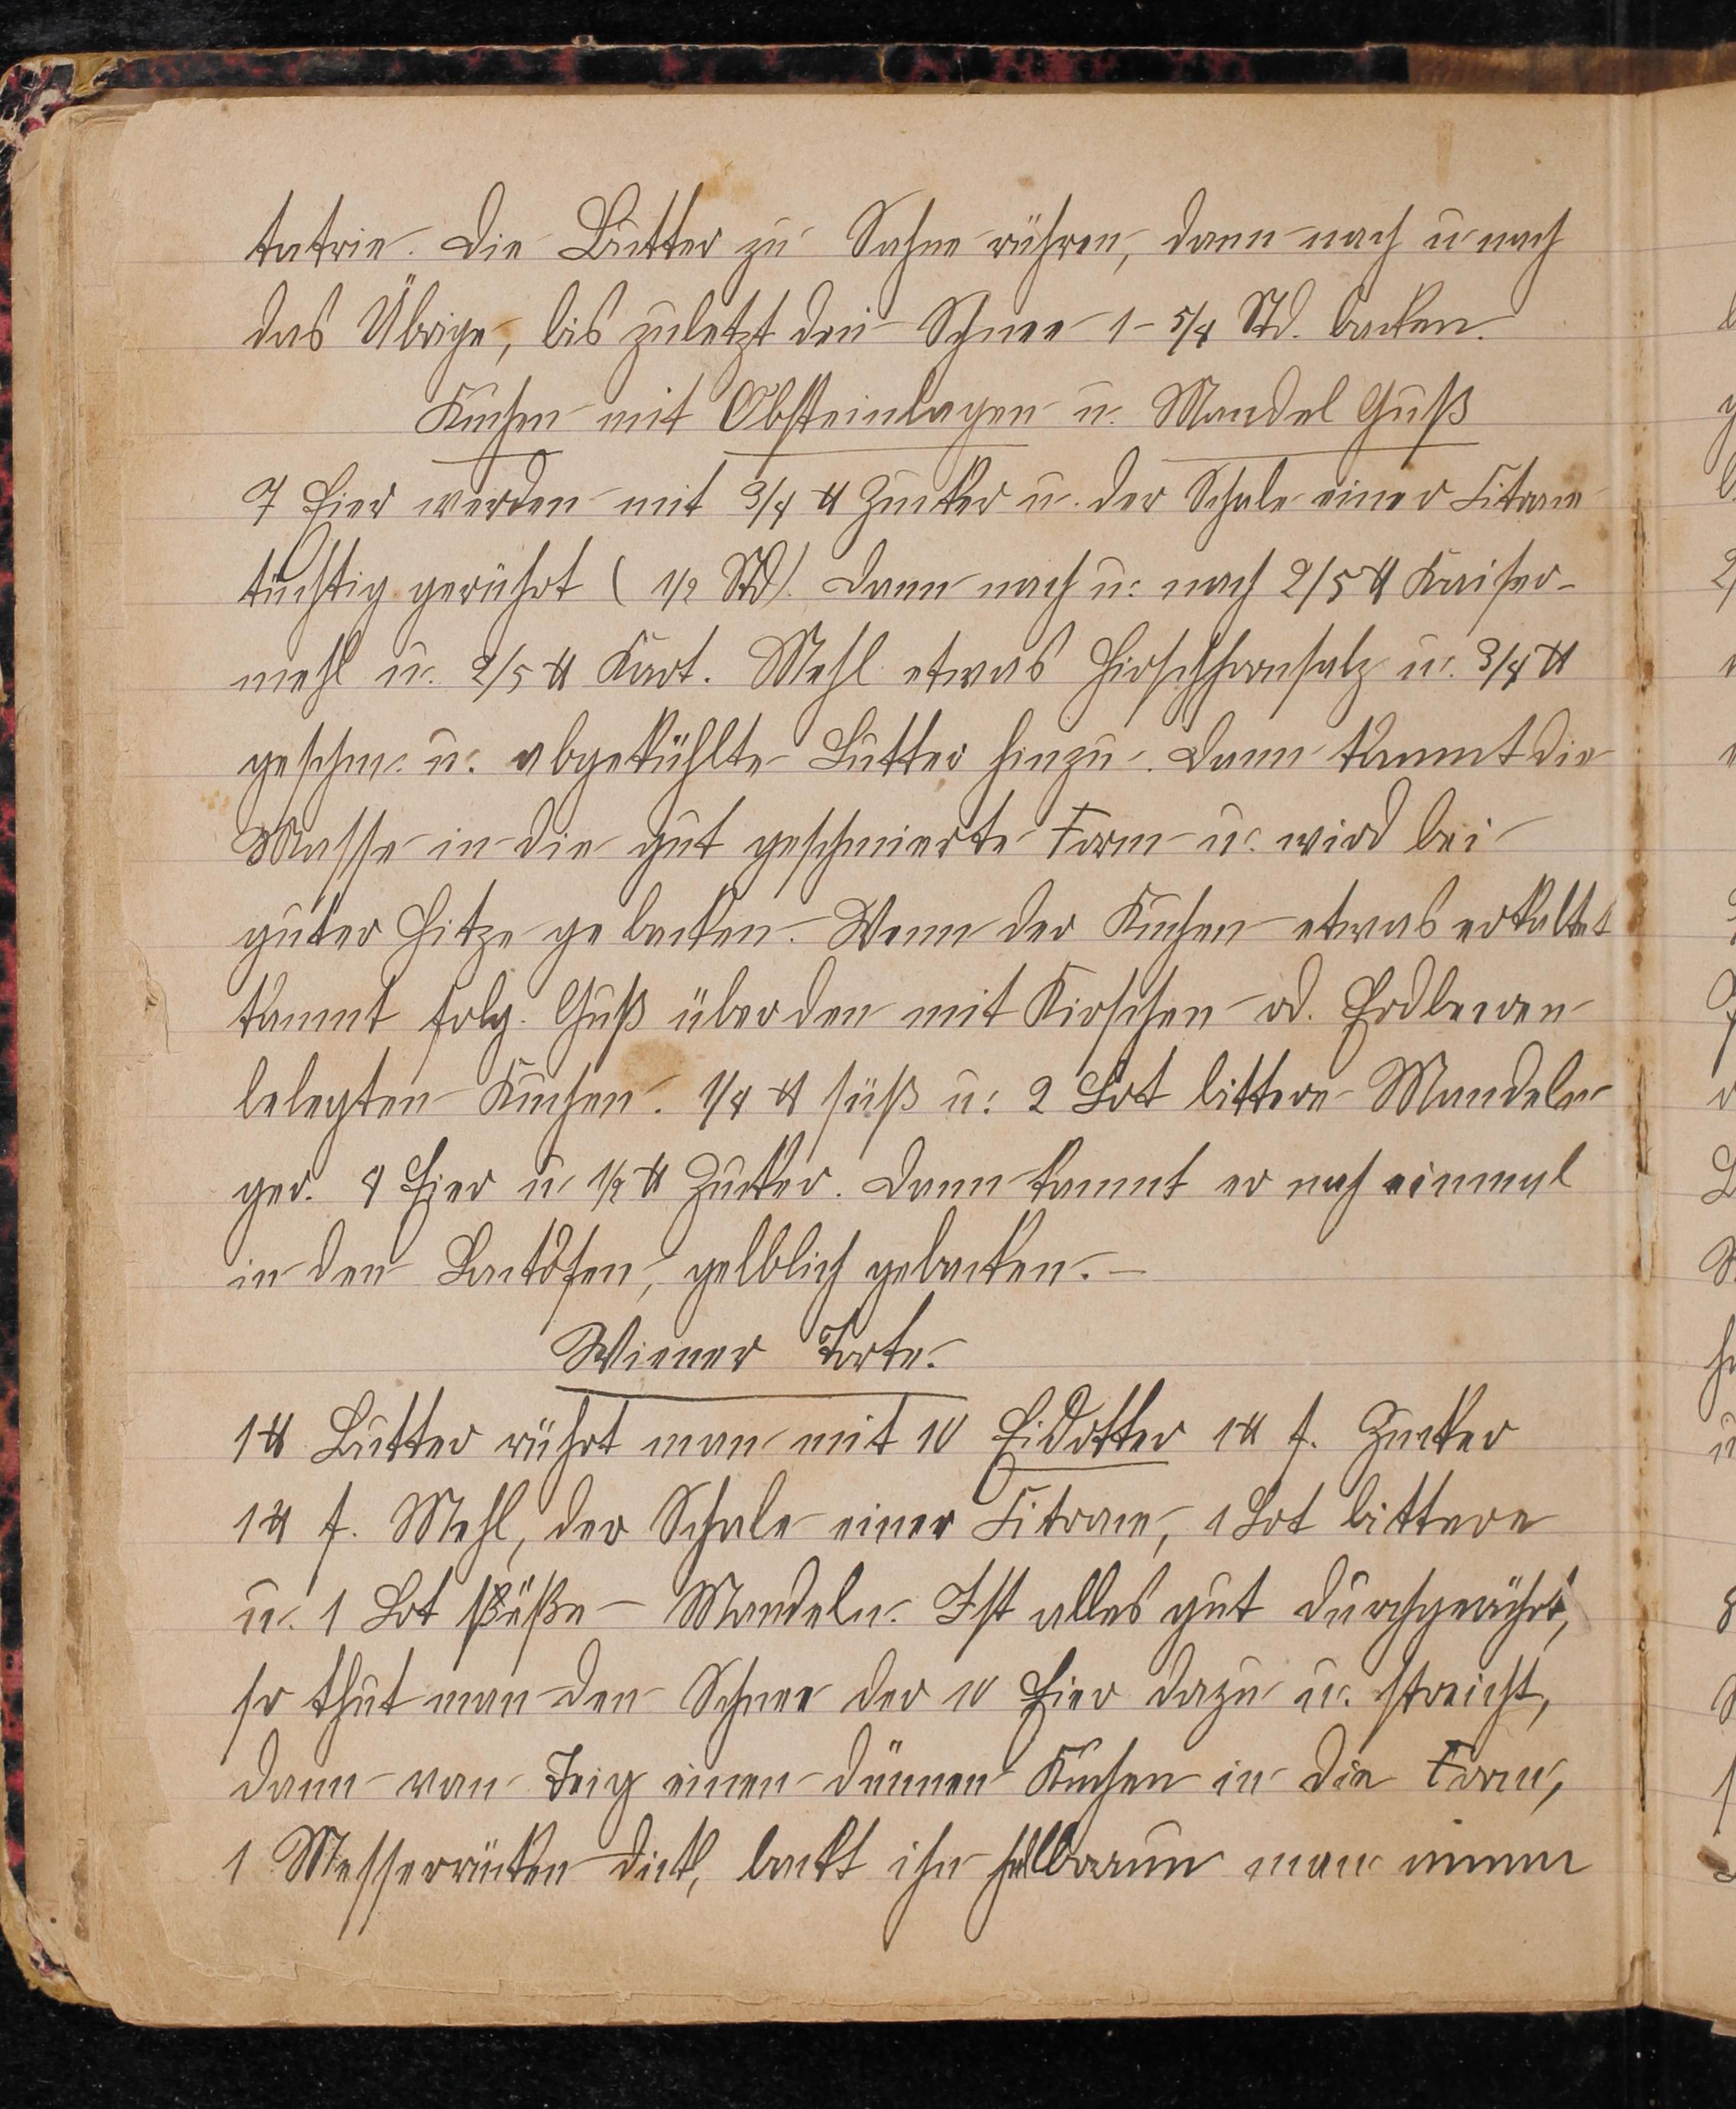 tatrie. Die Butter zu Sahne rühren, dann nach u nach
das Übrige, bis zuletzt den Schnee 1-5/4 Std. backen.
Kuchen mit Obsteinlagen u. Mandel Guß
7 Eier werden mit 3/4 ℔ Zucker u. der Schale einer Citrone
tüchtig gerührt (1/2 Std). Dann nach u. nach 2/5 ℔ Kaiser-
mehl u. 2/5 ℔ Kart. Mehl etwas Hirschhornsalz u. 3/4 ℔
geschm. u. abgekühlte Butter hinzu. Dann kommt die
Masse in die gut geschmierte Form u. wird bei
guter Hitze gebacken. Wenn der Kuchen etwas erkaltet
kommt folg. Guß über den mit Kirschen od. Erdbeeren
belegten Kuchen. 1/4 ℔ süß u. 2 Lot bittere Mandeln
ger. 4 Eier u 1/2 ℔ Zucker. Dann kommt er noch einmal
in den Backofen, gelblich gebacken. –
Wiener Torte.
1 ℔ Butter rührt man mit 10 Eidotter 1 ℔ f. Zucker
1 ℔ f. Mehl, der Schale einer Citrone, 1 Lot bittere
u. 1 Lot süße – Mandeln. Ist alles gut durchgerührt,
so thut man den Schnee der 10 Eier dazu u. streicht,
dann von Teig einen dünnen Kuchen in die Form,
1 Messerrücken dick, backt ihn hellbraun man nimm